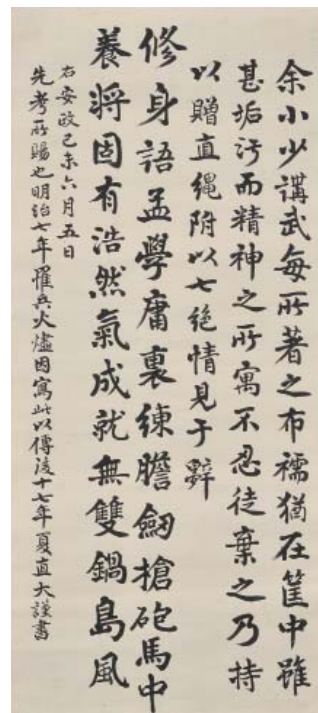 余小少講武每所著之布襦猶在筐中雖
甚垢汚而精神之所寓不忍徒棄之乃持
以贈直縄附以七絶情見于辭
修身語孟學庸裏練膽劔槍砲馬中
養將固有浩然氣成就無雙鍋島風
右安政己未六月五日
先考所賜也明治七年罹兵火燼因寫此以傳後十七年夏直大謹書